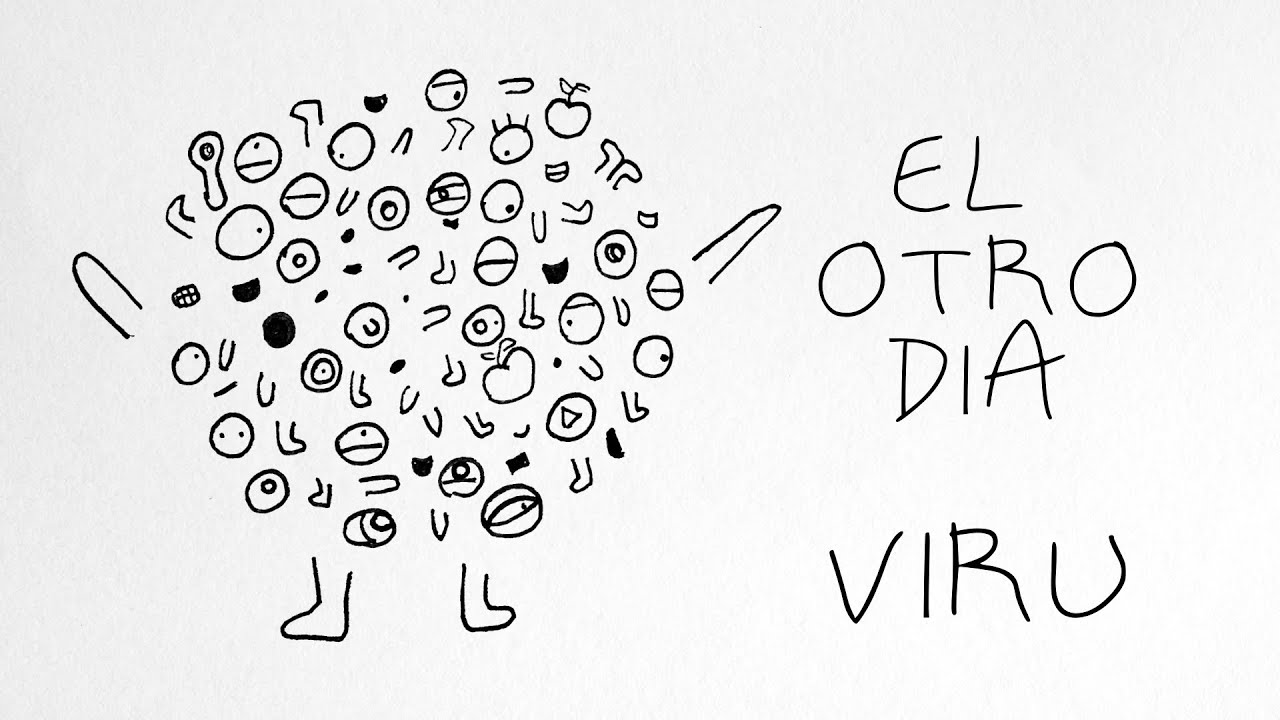 EL
OTRO
DIA
VIRU